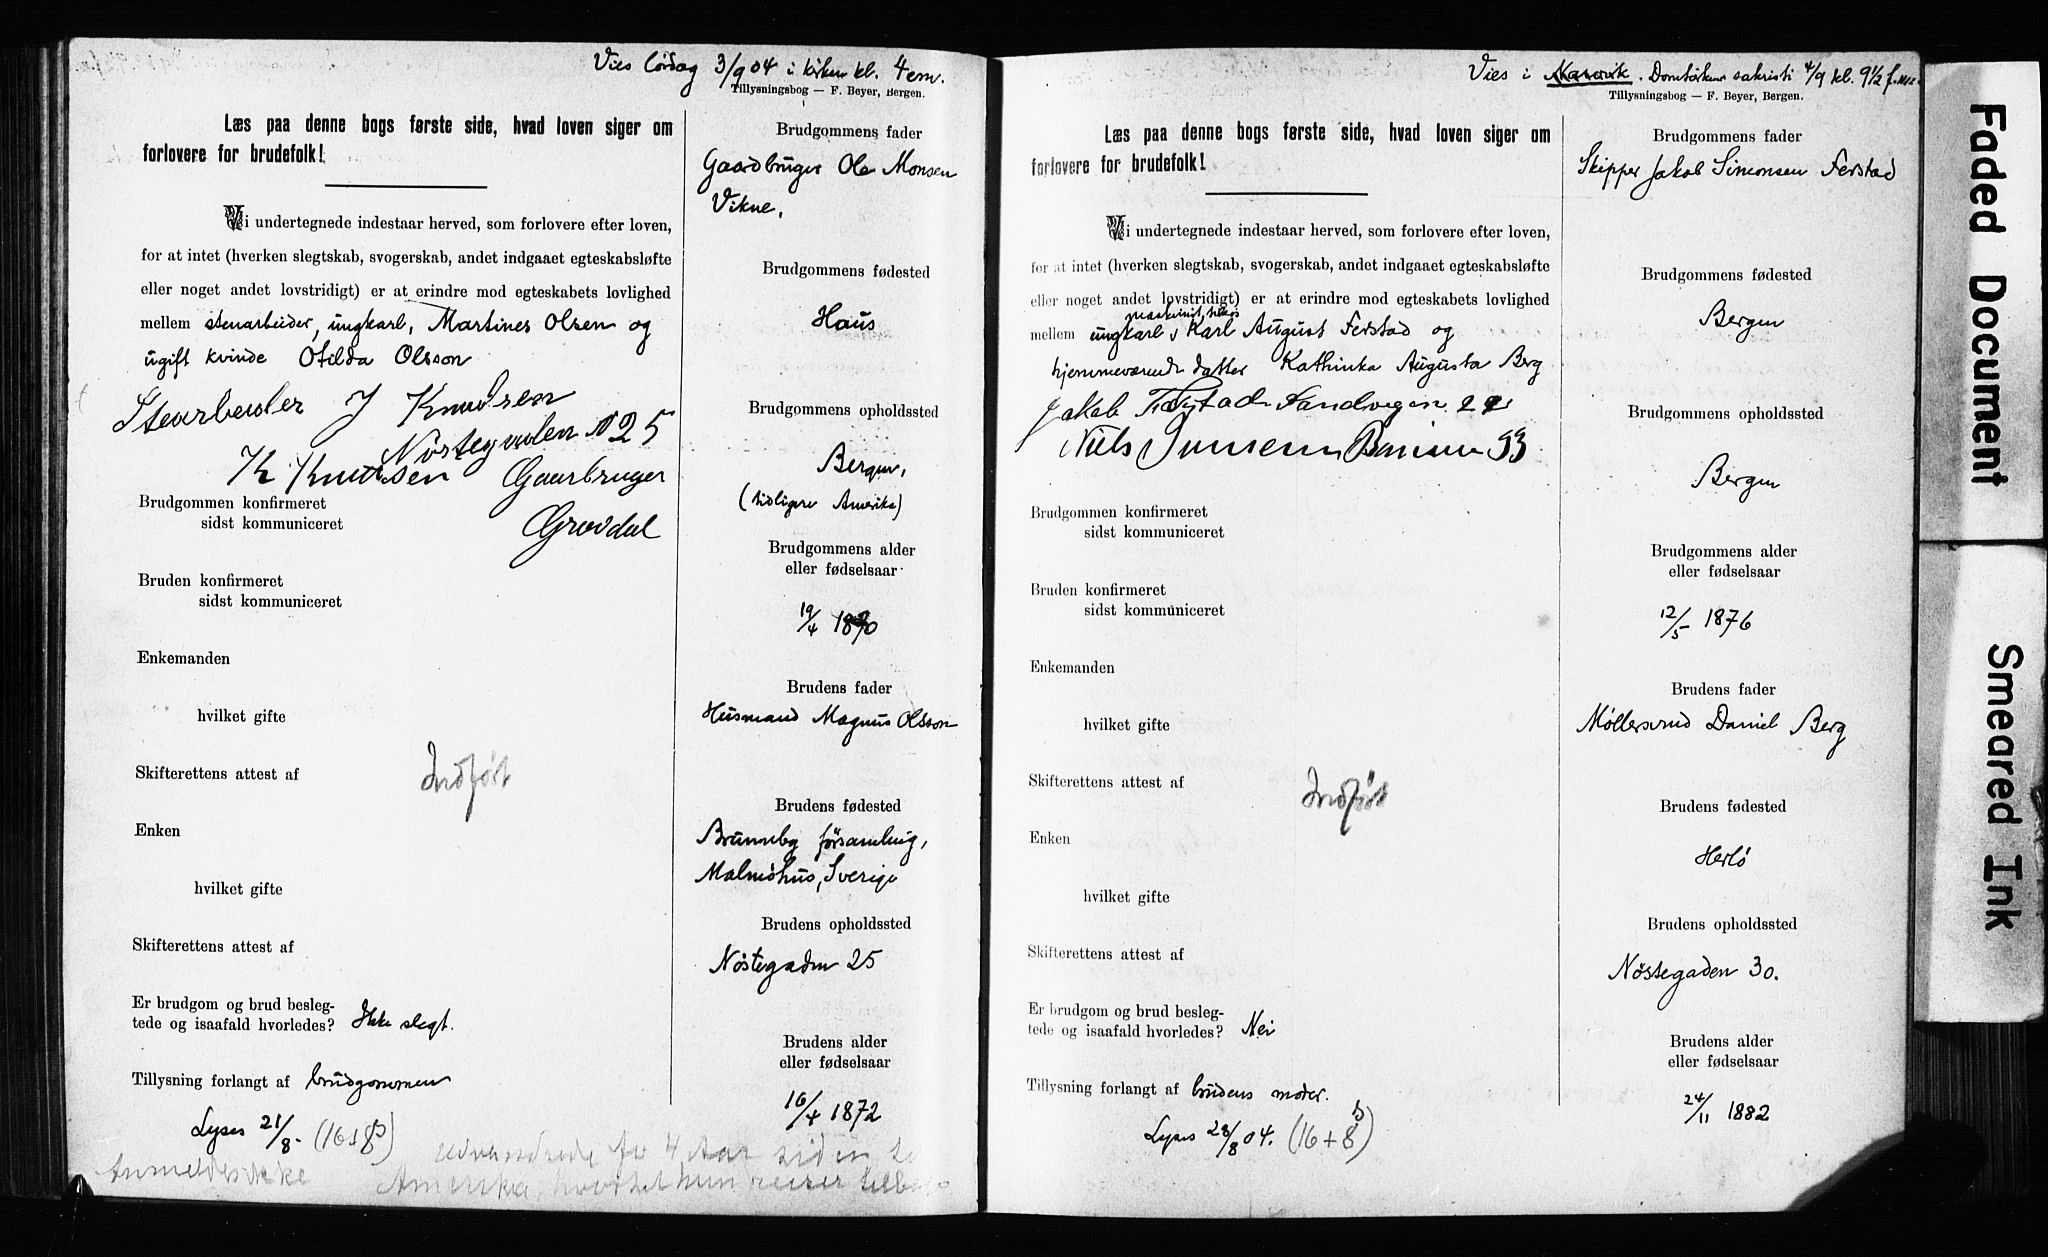 Vies lördag 3/9 04 i kirken kl. 4 em.
Tillysningsbog — F. Beyer, Bergen.
Læs paa denne bogs første side, hvad loven siger om
forlovere for brudefolk!
Vi undertegnede indestaar herved, som forlovere efter loven,
for at intet (hverken slegtskab, svogerskab, andet indgaaet egteskabsløfte
eller noget andet lovstridigt) er at erindre mod egteskabets lovlighed
mellem stenarbeider, ungkarl, Martines Olsen og
ugift kvinde Otilda Olsson
Stearbeider J Knudsen
Nøstegaden No 25
K Knudsen Gaarbruger
Grovdal
Brudgommen konfirmeret
sidst kommuniceret
Bruden konfirmeret
sidst kommuniceret
Enkemanden
hvilket gifte
Skifterettens attest af
Indført
Enken
hvilket gifte
Skifterettens attest af
Er brudgom og brud besleg-
tede og isaafald hvorledes? Ikke slegt.
Tillysning forlangt af brudgommen
Lyses 21/8.
Anmeldes ikke
udvandrede for 4 Aar siden
Amerika, hvortil hun reiser
Brudgommens fader
Gaardbruger Ole Monsen
Vikne.
Brudgommens fødested
Haus
Brudgommens opholdssted
Bergen,
(tidligere Amerika)
Brudgommens alder
eller fødselsaar
19/4 1870
Brudens fader
Husmand Magnus Olsson
Brudens fødested
Brunneby församling,
Malmöhus, Sverige
Brudens opholdssted
Nöstegaden 25
Brudens alder
eller fødselsaar
16/4 1872
Vies i Domkirkens sakristi 4/9 kl. 9 1/2 f.
Tillysningsbog — F. Beyer, Bergen.
Læs paa denne bogs første side, hvad loven siger om
forlovere for brudefolk!
Vi undertegnede indestaar herved, som forlovere efter loven,
for at intet (hverken slegtskab, svogerskab, andet indgaaet egteskabsløfte
eller noget andet lovstridigt) er at erindre mod egteskabets lovlighed
maskinist, tilkøs
mellem ungkarl, Karl August Ferstad og
hjemmeværende datter Kathinka Augusta Berg
Jakob Ferstad Sandvigen
Niels 33
Brudgommen konfirmeret
sidst kommuniceret
Bruden konfirmeret
sidst kommuniceret
Enkemanden
hvilket gifte
Skifterettens attest af
Indført
Enken
hvilket gifte
Skifterettens attest af
Er brudgom og brud besleg-
tede og isaafald hvorledes? Nei
Tillysning forlangt af brudens moder.
Lyses 28/8 04. (16 + 8)
Brudgommens fader
Skipper Jakob Simonsen Ferstad
Brudgommens fødested
Bergen
Brudgommens opholdssted
Bergen
Brudgommens alder
eller fødselsaar
12/5 1876
Brudens fader
Møllersvend Daniel Berg
Brudens fødested
Herlö
Brudens opholdssted
Nöstegaden 30.
Brudens alder
eller fødselsaar
24/11 1882
Faded Document
Smeared Ink